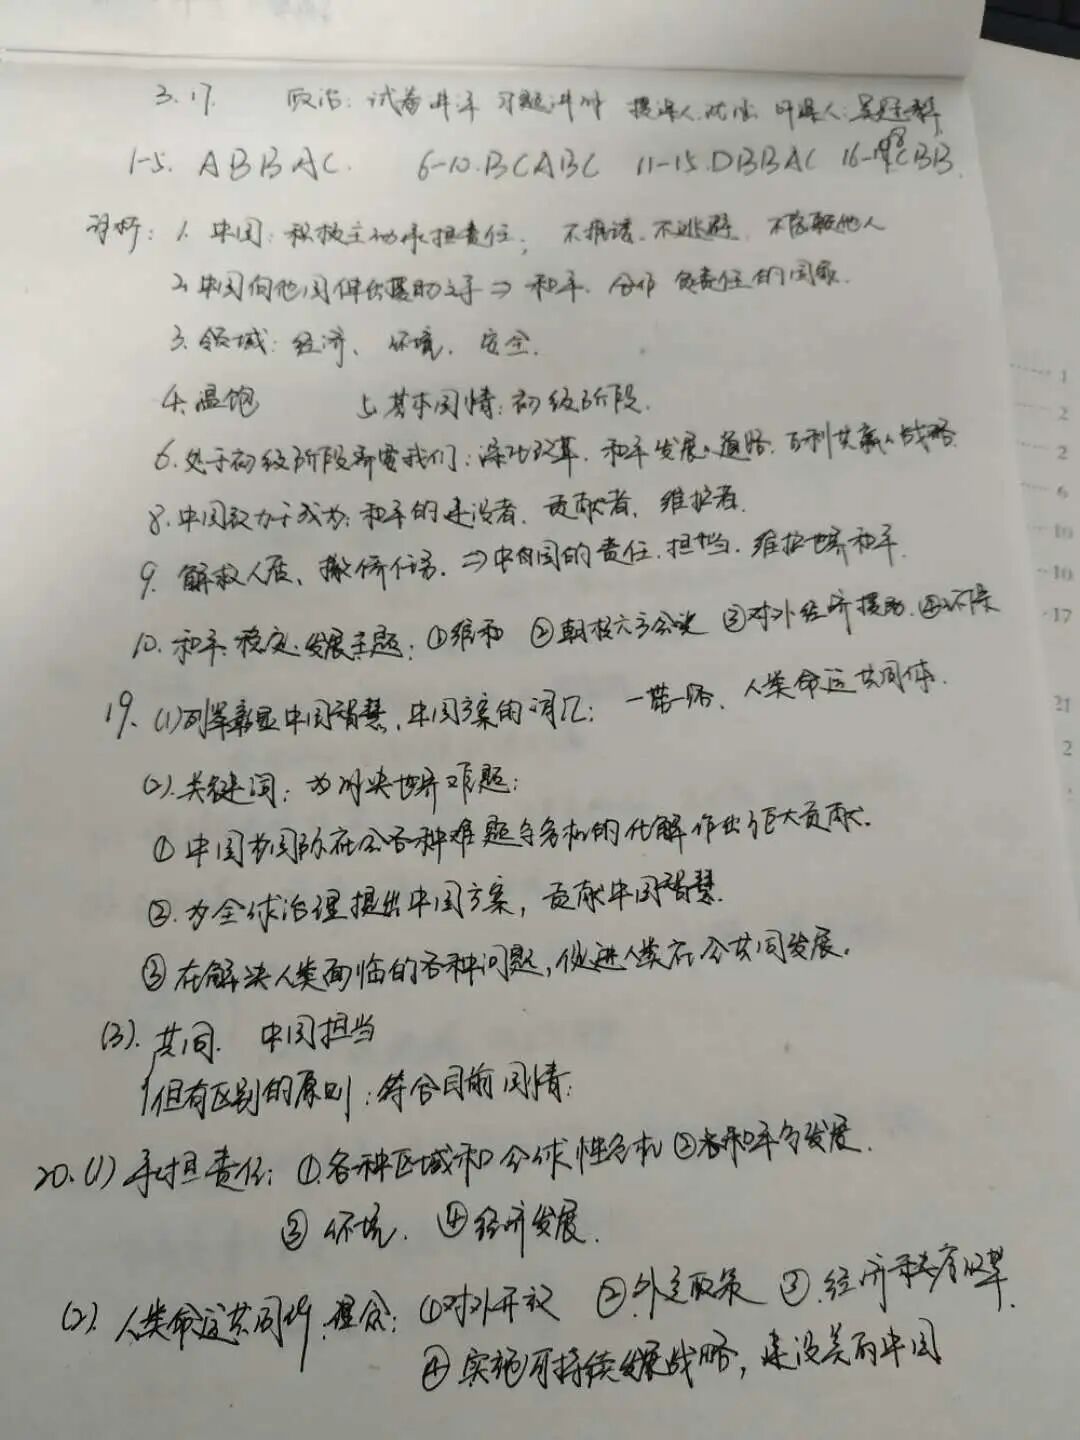 3.17. 政治: 试卷讲评 习题讲评 授课人:
1-5. ABBAC. 6-10. BCABC 11-15. DBBAC 16-18 CBB.
评析: 1. 中国: 积极主动承担责任; 不推诿、不逃避、不依赖他人
2. 中国向他国伸出援助之手 ⇒ 和平、合作 负责任的国家.
3. 领域: 经济、环境、安全.
4. 温饱 5. 基本国情: 初级阶段.
6. 处于初级阶段需要我们: 深化改革、和平发展道路、互利共赢战略
8. 中国致力于成为: 和平的建设者、贡献者、维护者.
9. 解救人质、撤侨任务. ⇒ 中国的责任、担当、维护世界和平.
10. 和平、稳定、发展主题: ①维和 ②朝核六方会谈 ③对外经济援助 ④环保
19. (1) 列举彰显中国智慧、中国方案的词汇: 一带一路、人类命运共同体.
(2). 关键词: 为解决世界难题:
① 中国为国际社会各种难题与危机的化解作出了巨大贡献.
②. 为全球治理提出中国方案, 贡献中国智慧.
③ 在解决人类面临的各种问题, 促进人类社会共同发展.
(3). 共同. 中国担当
但有区别的原则: 符合目前国情;
20. (1) 承担责任: ①各种区域和全球性危机 ②世界和平与发展.
③ 环境. ④ 经济发展.
(2). 人类命运共同体 理念: ①对外开放 ②外交政策 ③. 经济体系改革
④ 实施可持续发展战略, 建设美丽中国